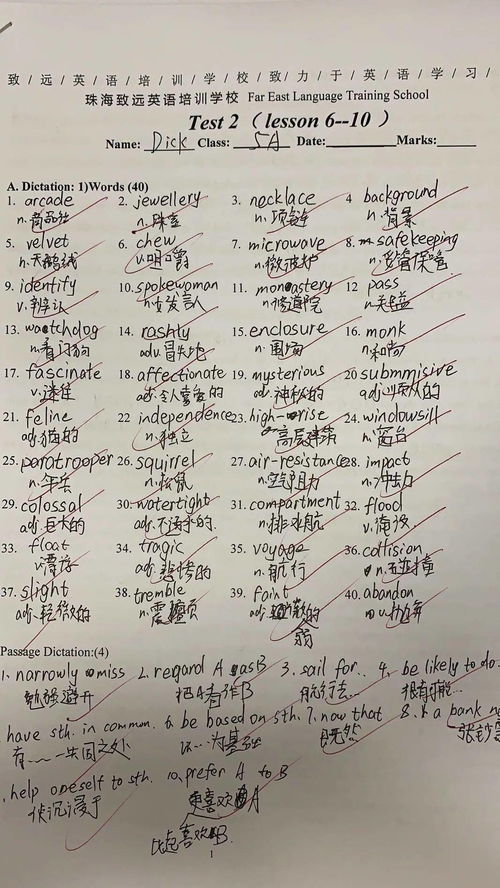 致/远/英/语/培/训/学/校/致/力/于/英/语/学/习/
珠海致远英语培训学校 Far East Language Training School
Test 2 ( lesson 6--10 )
Name: Dick Class: 5A Date: Marks:
A. Dictation: 1)Words (40)
1. arcade 2. jewellery 3. necklace 4 background
n. n.珠宝 n.项链 n.背景
5. velvet 6. chew 7. microwave 8. safekeeping
n.天鹅绒 v.咀嚼 n.微波炉 n.妥管保管
9. identify 10. spokewoman 11. monastery 12 pass
v.辨认 n.女发言人 n.修道院 n.关隘
13. watchdog 14. rashly 15. enclosure 16. monk
n.看门狗 adv.冒失地 n.围场 n.和尚
17. fascinate 18. affectionate 19. mysterious 20 submmisive
v.迷住 adj. adj.神秘的 adj.顺从的
21. feline 22 independence 23. high-rise 24. windowsill
adj.猫的 n.独立 高层建筑 n.窗台
25. paratrooper 26. squirrel 27. air-resistance 28. impact
n.伞兵 n.松鼠 n.空气阻力 n.冲击力
29. colossal 30. watertight 31. compartment 32. flood
adj.巨大的 adj.不透水的 n. v.淹没
33. float 34. tragic 35. voyage 36. collision
v.漂浮 adj.悲惨的 n.航行 n.碰撞
37. slight 38. tremble 39. faint 40. abandon
adj.轻微的 n.震颤 adj. 的
弱
Passage Dictation:(4)
1. narrowly miss 2. regard A as B 3. sail for.. 4. be likely to do.
勉强避开 把A看作B 航行去... 很有可能...
have sth. in common. 6. be based on sth. 7. now that 8. a bank no
有……共同之处 以…为基础 既然 一张钞票
.help oneself to sth. 10. prefer A to B
更喜欢A
比起喜欢B.
1